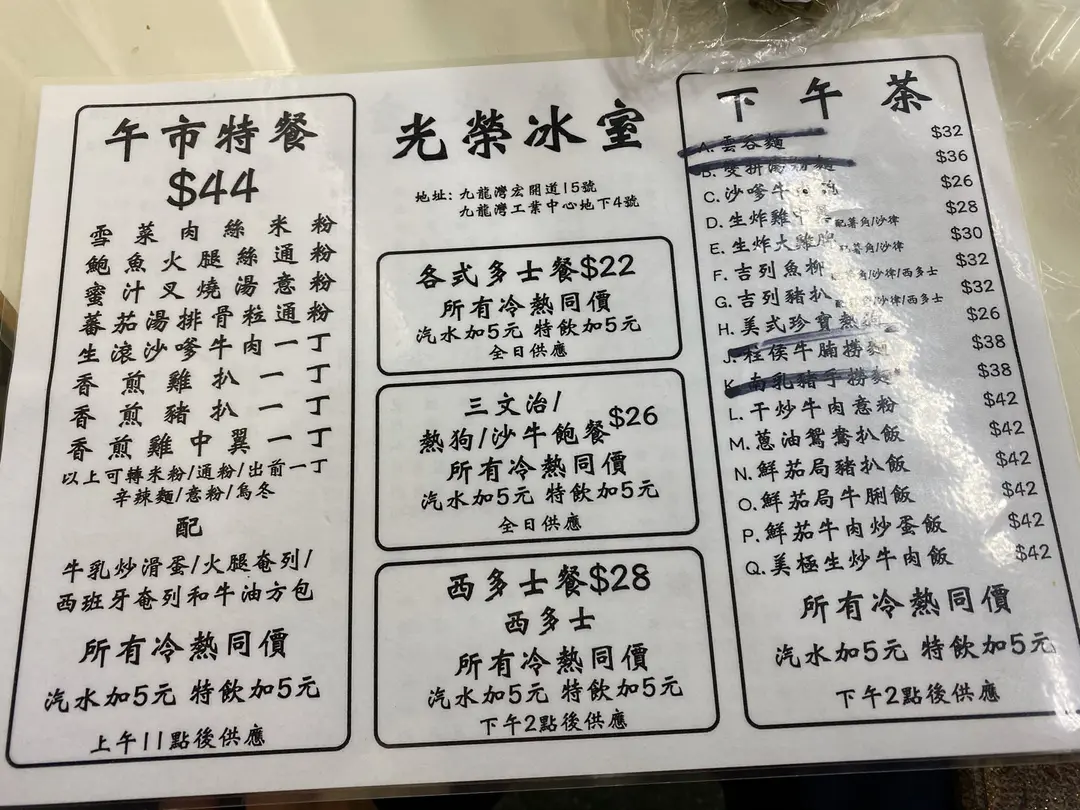 午市特餐
$44
雪菜肉絲米粉
鮑魚火腿絲通粉
蜜汁叉燒湯意粉
蕃茄湯排骨粒通粉
生滾沙嗲牛肉一丁
香煎雞扒一丁
香煎豬扒一丁
香煎雞中翼一丁
以上可轉米粉/通粉/出前一丁
辛辣麵/意粉/烏冬
配
牛乳炒滑蛋/火腿奄列/
西班牙奄列和牛油方包
所有冷熱同價
汽水加5元 特飲加5元
上午11點後供應
光榮冰室
地址: 九龍灣宏開道15號
九龍灣工業中心地下4號
各式多士餐$22
所有冷熱同價
汽水加5元 特飲加5元
全日供應
三文治/
熱狗/沙牛飽餐$26
所有冷熱同價
汽水加5元 特飲加5元
全日供應
西多士餐$28
西多士
所有冷熱同價
汽水加5元 特飲加5元
下午2點後供應
下午茶
A. 雲吞麵 $32
B. 雙拼 粉麵 $36
C. 沙嗲牛 $26
D. 生炸雞中翼 配薯角/沙律 $28
E. 生炸大雞脾 配薯角/沙律 $30
F. 吉列魚柳 配薯角/沙律/西多士 $32
G. 吉列豬扒 配薯角/沙律/西多士 $32
H. 美式珍寶熱狗 $26
J. 柱侯牛腩撈麵 $38
K. 南乳豬手撈麵 $38
L. 干炒牛肉意粉 $42
M. 蔥油鴛鴦扒飯 $42
N. 鮮茄局豬扒飯 $42
O. 鮮茄局牛脷飯 $42
P. 鮮茄牛肉炒蛋飯 $42
Q. 美極生炒牛肉飯 $42
所有冷熱同價
汽水加5元 特飲加5元
下午2點後供應